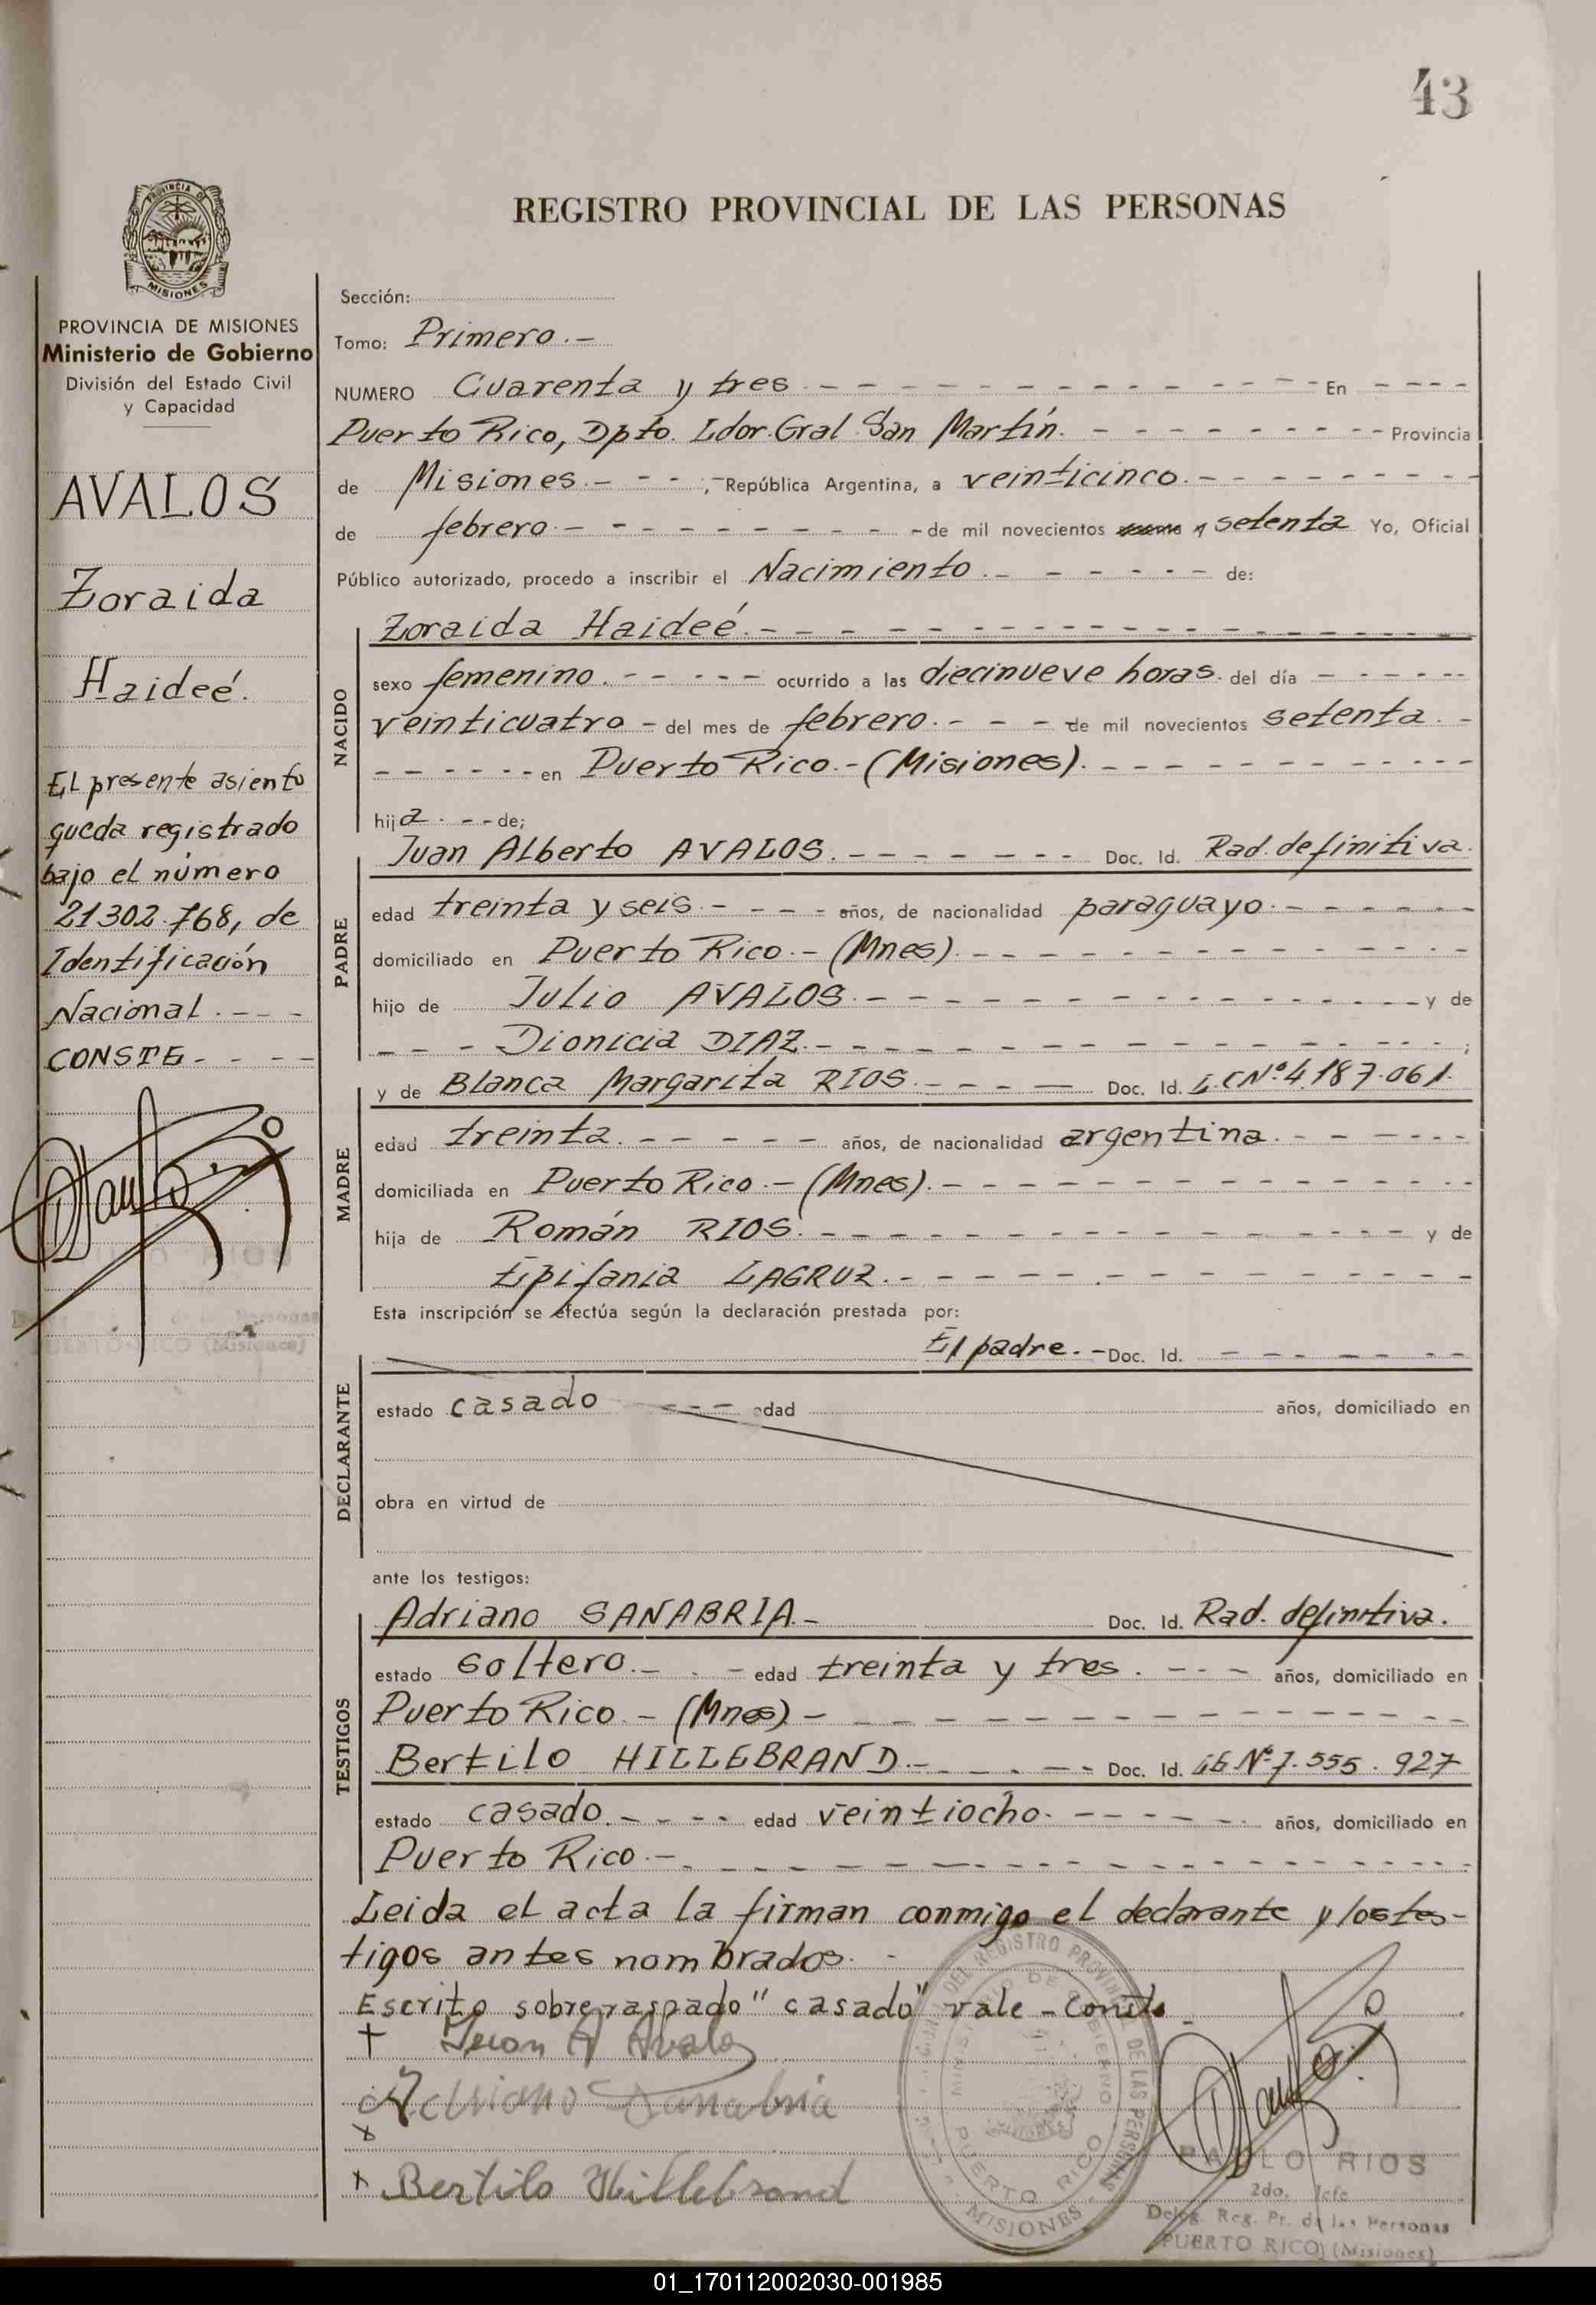 43
PROVINCIA DE
MISIONES
REGISTRO PROVINCIAL DE LAS PERSONAS
PROVINCIA DE MISIONES
Ministerio de Gobierno
División del Estado Civil
y Capacidad
AVALOS
Zoraida
Haideé.
El presente asiento
queda registrado
bajo el número
21302.768, de
Identificación
Nacional.---
CONSTE----
Sección:
Tomo: Primero.-
NUMERO Cuarenta y tres - - - En - - - -
Puerto Rico, Dpto. Ldor. Gral San Martín. - - - Provincia
de Misiones. - - - , República Argentina, a veinticinco. - - -
de febrero - - - de mil novecientos y setenta Yo, Oficial
Público autorizado, procedo a inscribir el Nacimiento. - - - de:
NACIDO
Zoraida Haideé. - - -
sexo femenino. - - - ocurrido a las diecinueve horas. del día - - -
veinticuatro - del mes de febrero. - - - de mil novecientos setenta. -
- - - en Puerto Rico.- (Misiones). - - -
hija. - - de;
PADRE
Juan Alberto AVALOS. - - - Doc. Id. Rad. definitiva.
edad treinta y seis - - - años, de nacionalidad paraguayo. - - -
domiciliado en Puerto Rico.- (Mnes). - - -
hijo de Julio AVALOS. - - - y de
- - - Dionicia DIAZ. - - - ;
MADRE
y de Blanca Margarita RIOS. - - - Doc. Id. L.C Nº 4.187.061.
edad treinta. - - - años, de nacionalidad argentina. - - -
domiciliada en Puerto Rico.- (Mnes). - - -
hija de Román RIOS. - - - y de
Epifania LAGRUZ. - - -
Esta inscripción se efectúa según la declaración prestada por:
DECLARANTE
El padre. - Doc. Id. - - -
estado casado - - - edad años, domiciliado en
obra en virtud de
ante los testigos:
TESTIGOS
Adriano SANABRIA.- Doc. Id. Rad. definitiva.
estado soltero. - - edad treinta y tres. - - - años, domiciliado en
Puerto Rico.- (Mnes) - - -
Bertilo HILLEBRAND. - - - Doc. Id. LE Nº 7.555.927
estado casado. - - - edad veintiocho. - - - años, domiciliado en
Puerto Rico.- - - -
Leida el acta la firman conmigo el declarante y los tes-
tigos antes nombrados. -
Escrito sobre raspado "casado" vale - Conste
Juan A Avalos
Adriano Sanabria
Bertilo Hillebrand
DEL REGISTRO PROVINCIAL DE LAS PERSONAS
MINISTERIO DE GOBIERNO
PUERTO RICO
MISIONES
PABLO RIOS
2do. Jefe
Deleg. Reg. Pr. de las Personas
PUERTO RICO (Misiones)
01_170112002030-001985